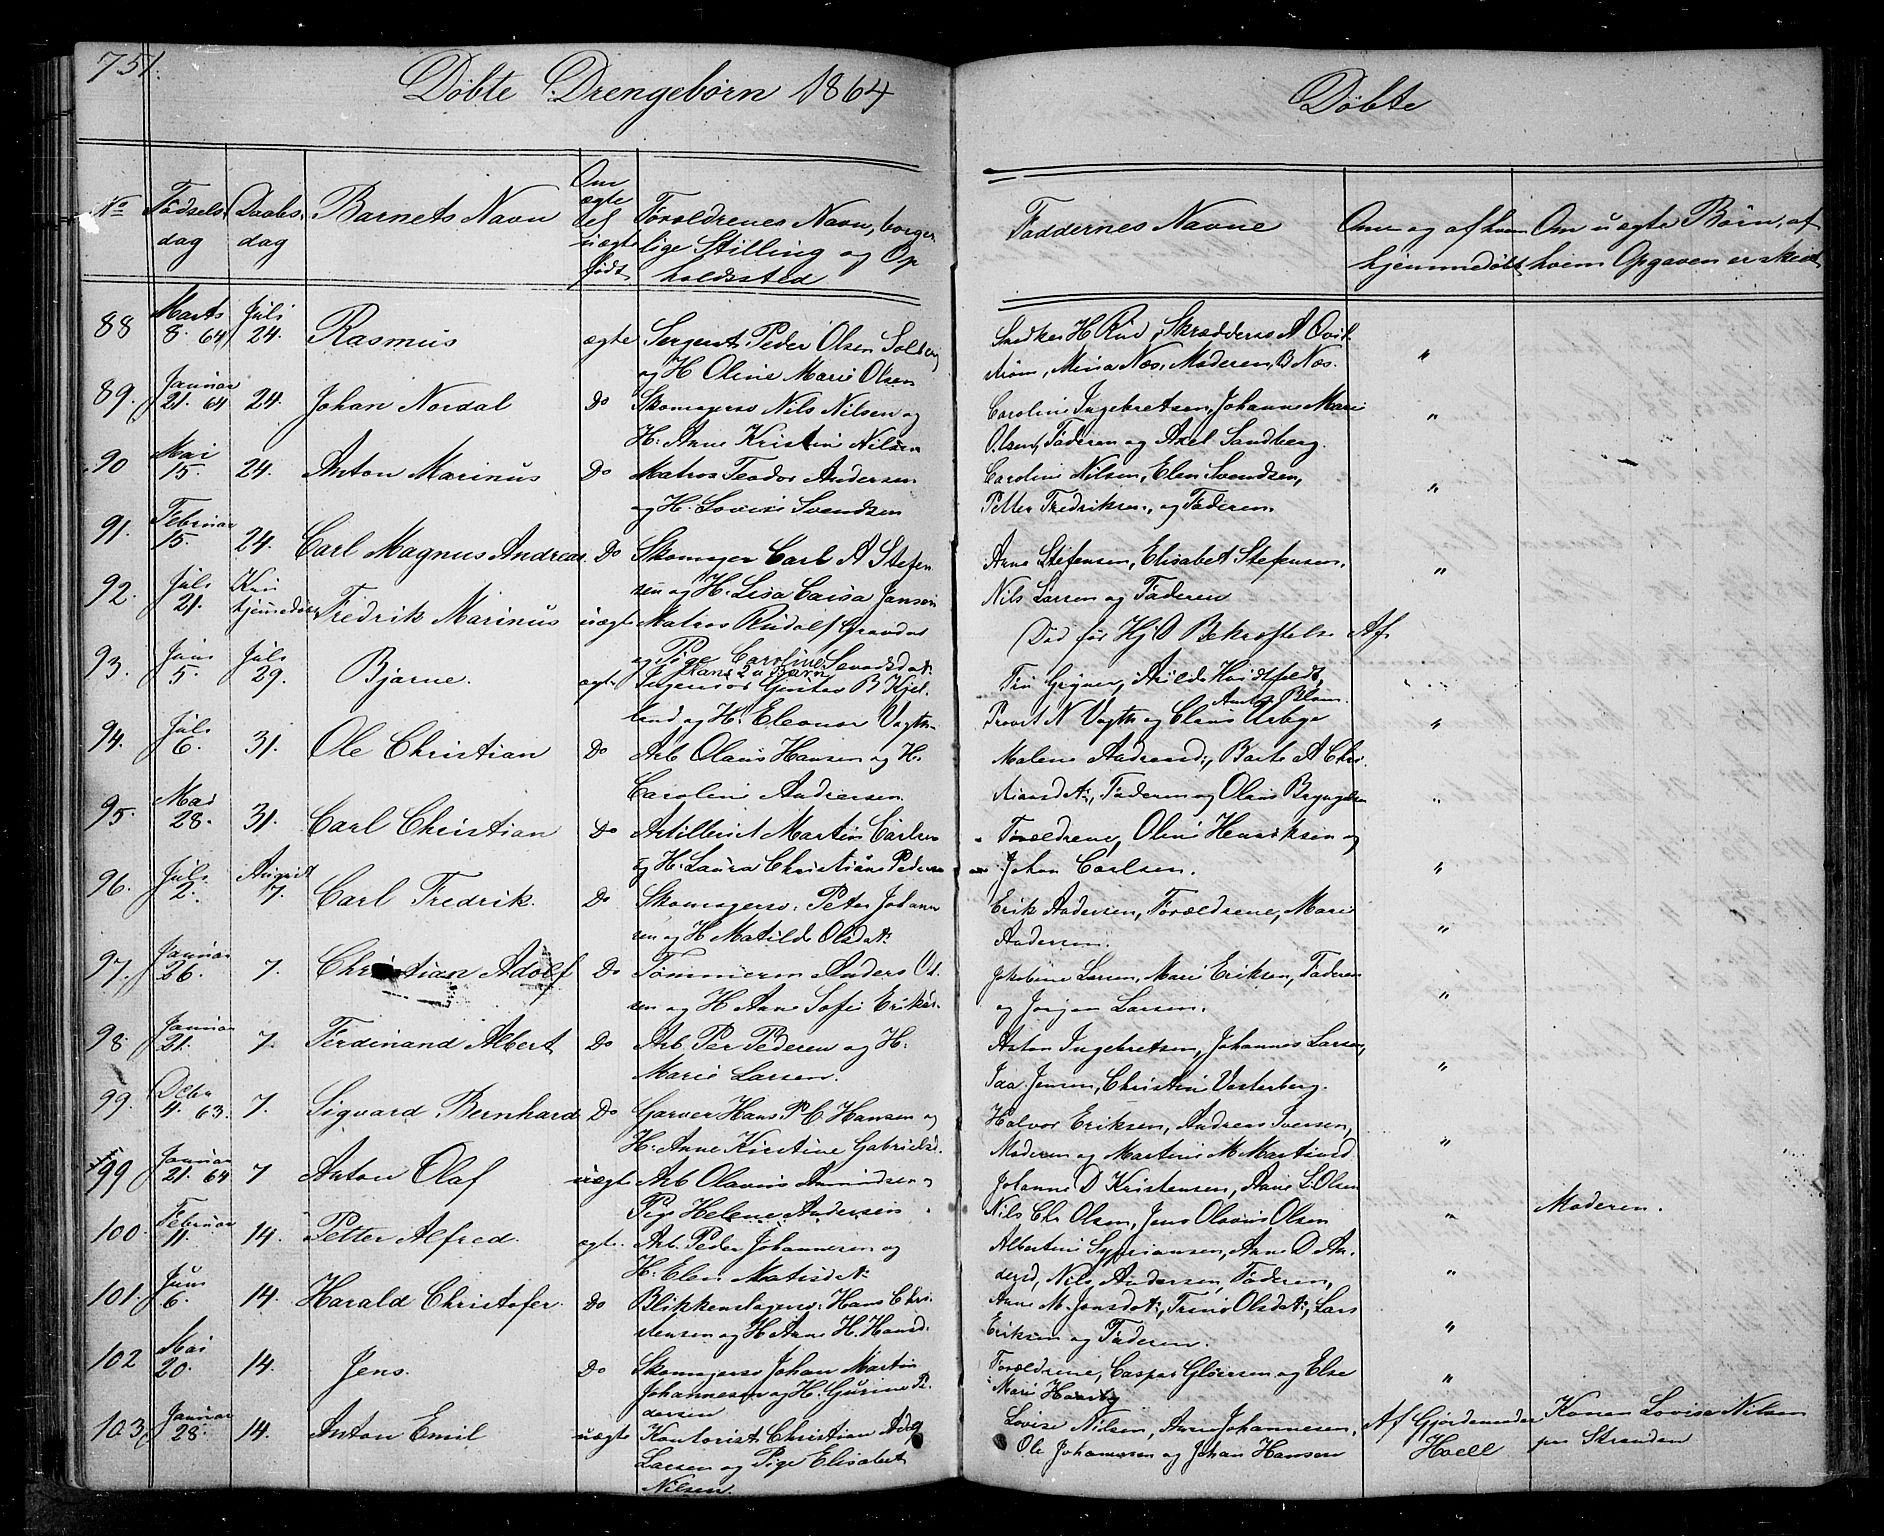 751.
Döbte Drengebørn 1864
Döbte
No Födsels dag Daabs dag Barnets Navn Om ægte el uægte födt Foreldrenes Navn, borger lige Stilling og Op holdssted
Faddernes Navne Om og af hvem hjemmedöbt Om uægte Börn, af hvem Opgaven er skeet
88 Marts 8. 64 Juli 24. Rasmus ægte Sergent Peder Olsen Solberg
og H Oline Marie Olsen
Snedker H Rud, Skrædders A Qvil
ström, Mina Næs, Moderen, B Næs. "
89. Januar 21. 64 24. Johan Nordal Do Skomagersv Nils Nilsen og
H: Anne Kristin Nilsen
Caroline Ingebretsen, Johanne Marie
Olsen, Faderen og Axel Sandberg. "
90 Mai 15. 24. Anton Marinus Do Matros Teodor Andersen
og H. Lovise Svendsen
Caroline Nilsen, Elen Svendsen,
Petter Fredriksen, og Faderen. "
91. Februar 15. 24. Carl Magnus Andreas. Do Skomager Carl A Stefen
sen og H. Lisa Caisa Jansen
Anne Stefensen, Elisabet Stefensen,
Nils Larsen og Faderen "
92. Juli 21. Kun hjemmedöbt Fredrik Marinus uægte Matros Rudolf
og Pige Caroline
Hans 2det Barn
Död før Hj D Bekræftelse Af
93. Juni 5. Juli 29. Bjarne. ægte Ingeniør Gustav B Kjel
land og H. Eleonor Vogth
Fru Gryner, Arild Huidtfeldt,
Amtm Blom.
Provst N Vogth og Claus Urbye "
94. Juli 6. 31. Ole Christian Do Arb Olaus Hansen og H.
Caroline Andersen.
Malene Andersd:, Barte A Chri
stiansdt:, Faderen og Olaus Bryngelsen "
95. Mai 28. 31. Carl Christian Do Artillerist Martin Carlsen
og H. Laura Christiane Pedersen
Forældrene, Oline Henriksen og
Johan Carlsen. "
96. Juli 2. August 7. Carl Fredrik. Do Skomagersv: Peter Johann
sen og H Matilde Olsdat:
Erik Andersen, Forældrene, Marie
Andersen. "
97. Januar 26. 7. Christian Adolf Do Tömmerm Anders Ol
sen og H Anne Sofie Eriksen
Jakobine Larsen, Marie Eriksen, Faderen
og Jørgen Larsen. "
98. Januar 21. 7. Ferdinand Albert Do Arb. Per Pedersen og H:
Marie Larsen.
Aston Ingebretsen, Johannes Larsen,
Jaa. Jensen, Christine Vesterberg. "
99. Decbr 4. 63. 7. Sigvard Bernhard Do Garver Hans P C Hansen og
H: Anne Kirstine Gabrielsd.
Halvor Eriksen, Andreas Iversen,
Moderen og Martine M Martinsd "
99 Januar 21. 64 7 Anton Olaf uægte Arb Olavus Amundsen og
Pige Helene Andersen.
Johanne D Kristensen, Anne L Olsen
Nils Chr Olsen, Jens Olavus Olsen " Moderen.
100. Februar 11. 14. Petter Alfred. ægte. Arb. Peder Johannesen og
H: Elen Matisdt:
Albertine Sypriansen, Anne D An
dersd, Nils Andersen, Faderen, "
101. Juni 6. 14. Harald Christofer. Do Blikkenslagersv: Hans Chri
stensen og H Anne H. Hansd.
Anne M. Jonsdat:, Trine Olsdat:, Lars
Eriksen og Faderen. "
102 Mai 20. 14. Jens. Do Skomagersv Johan Martin
Johannesen og H: Gurine Pe
dersen
Forældrene, Caspar Gløersen og Else
Marie Haarby "
103. Januar 28. 14. Anton Emil uægte Kontorist Christian
Larsen og Pige Elisabet
Nilsen.
Lovise Nilsen, Anne Johannesen,
Ole Johannesen og Johan Hansen
Af Gjordemoder
Hoell
Konen Lovise Nilsen
paa Stranden